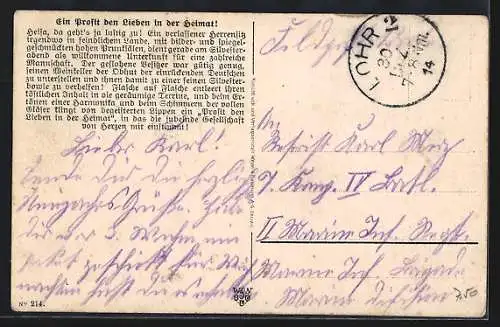 Ein Prosit den Lieben in der Heimat!
Heisa, da geht's ja lustig zu! Ein verlassener Herrensitz
irgendwo in feindlichen Lande, mit bilder- und spiegel-
geschmückten hohen Prunksälen, dient gerade am Silvester-
abend als willkommene Unterkunft für eine zahlreiche
Mannschaft. Der geflohene Besitzer war gütig genug,
seinen Weinkeller der Obhut der einrückenden Deutschen
zu unterstellen und ihnen damit zu einer feinen Silvester-
bowle zu verhelfen! Flasche auf Flasche entleert ihren
köstlichen Inhalt in die geräumige Terrine, und beim Er-
tönen einer Harmonika und beim Schimmern der vollen
Gläser klingt von begeisterten Lippen ein „Prosit den
Lieben in der Heimat", in das die jubelnde Gesellschaft
von Herzen mit einstimmt!
Lieber Karl!
Sende Dir die herzl.
Neujahrs Grüße. Habe
Dir der 3. ein
Paket geschickt für Weih
nachten hast du es
No 214.
LOHR 2
30
DEZ.
14
Feldpost
An
Karl
7. Komp. IV Batl.
II Marine Inf. Regt.
Marine Inf. Brigade
Marine Division